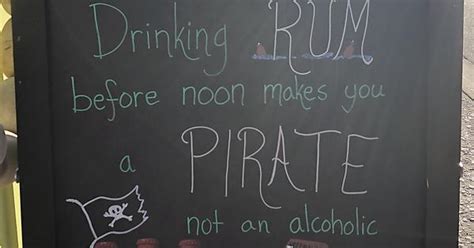 Drinking RUM
before noon makes you
a PIRATE
not an alcoholic